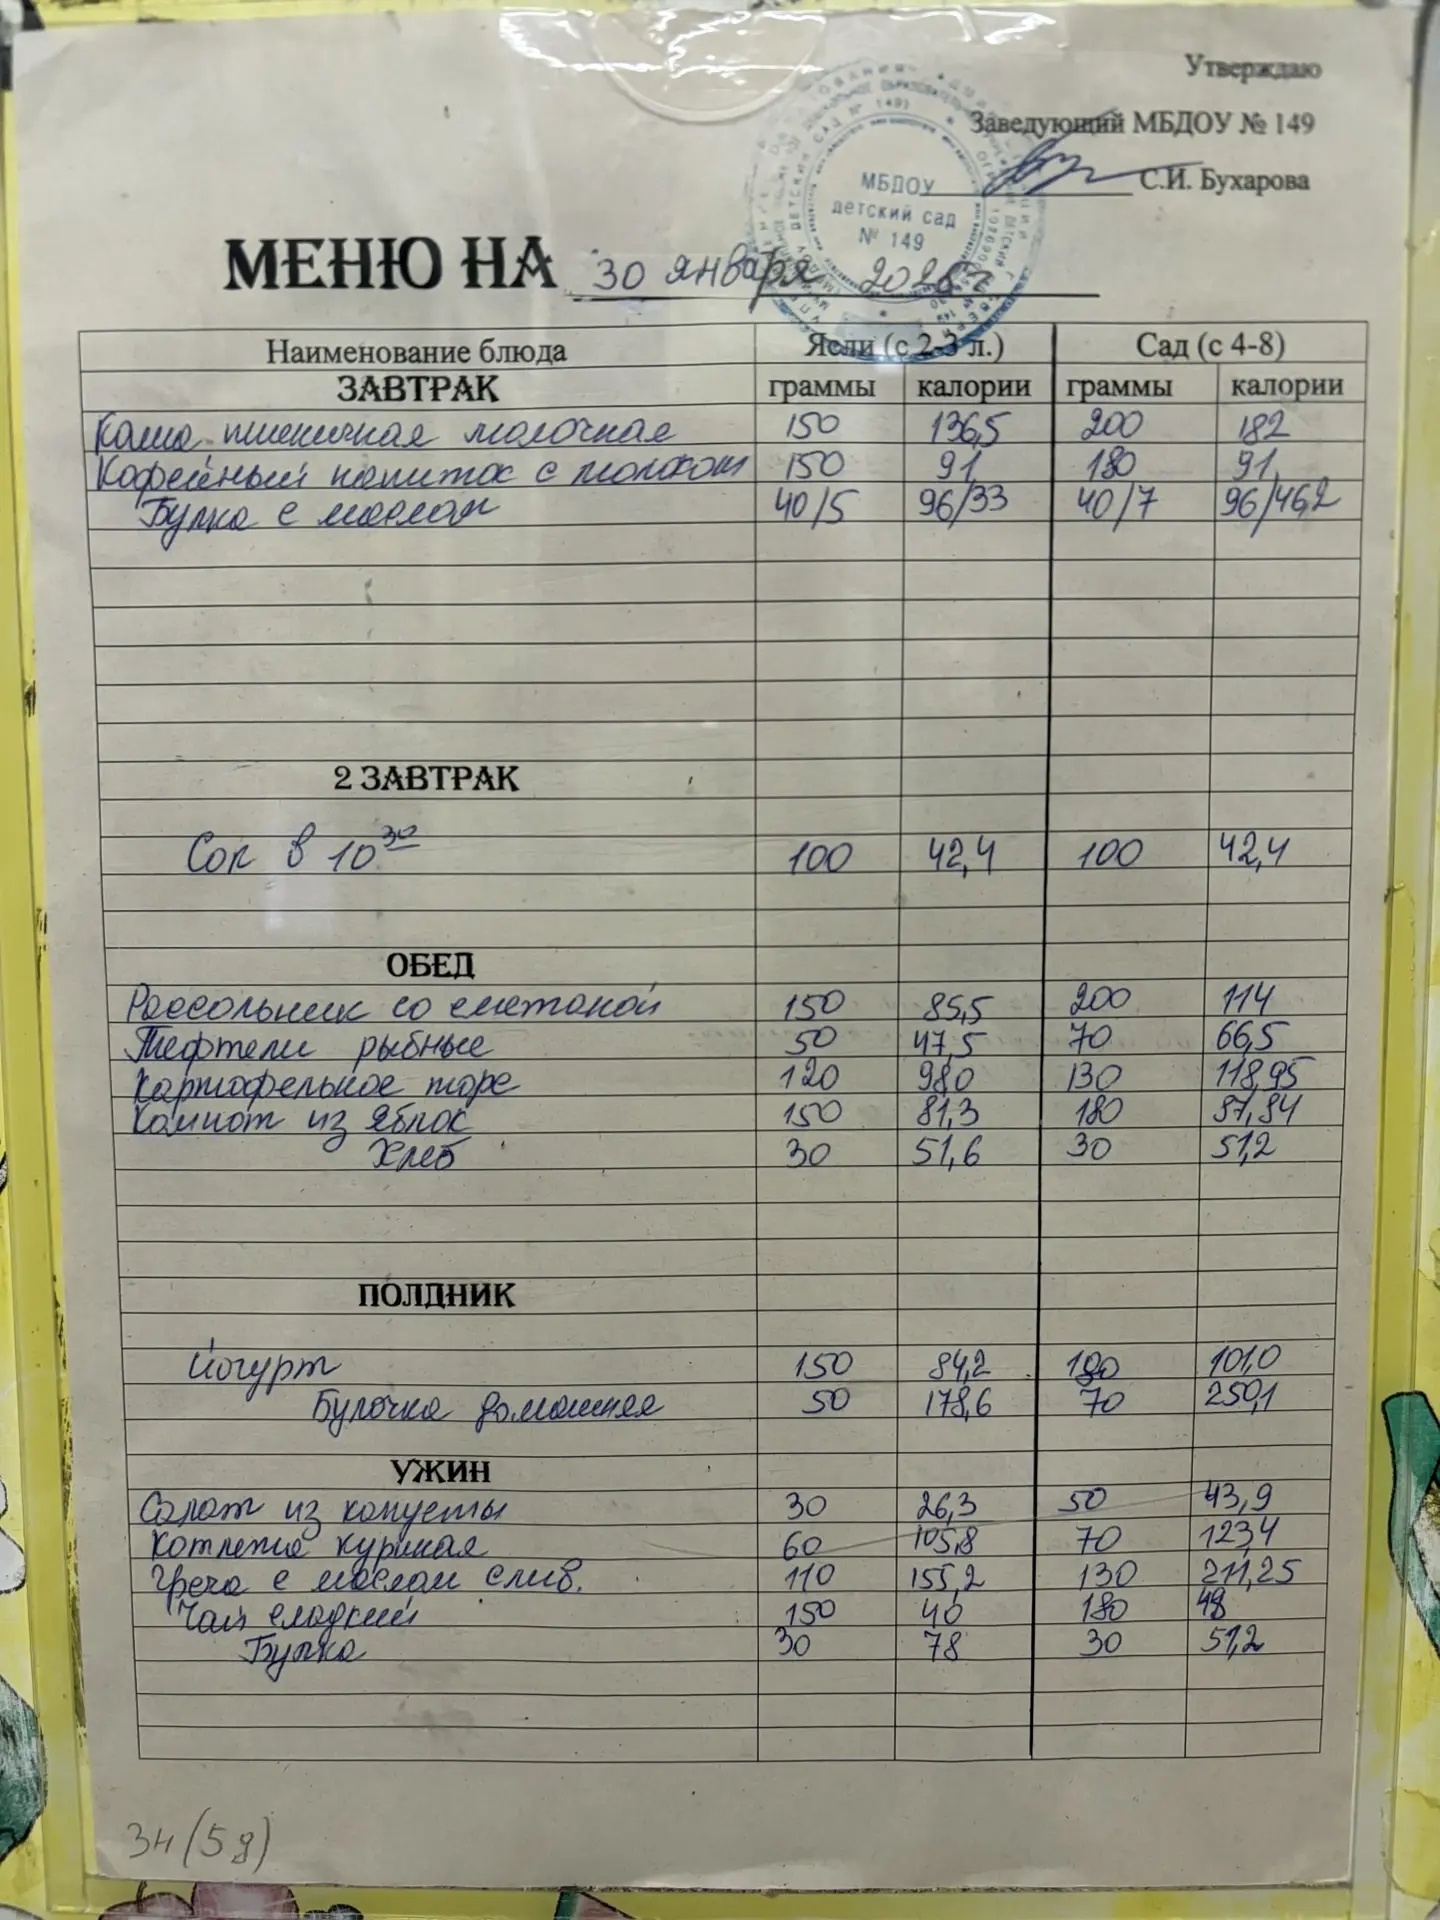 Утверждаю
Заведующий МБДОУ № 149
С.И. Бухарова
МБДОУ
детский сад
№ 149
МЕНЮ НА 30 января 2026г
Наименование блюда Ясли (с 2-3 л.) Сад (с 4-8)
ЗАВТРАК граммы калории граммы калории
Каша пшеничная молочная 150 136,5 200 182
Кофейный напиток с молоком 150 91 180 91
Булка с маслом 40/5 96/33 40/7 96/46,2
2 ЗАВТРАК
Сок в 10 30 100 42,4 100 42,4
ОБЕД
Рассольник со сметаной 150 85,5 200 114
Тефтели рыбные 50 47,5 70 66,5
Картофельное пюре 120 98,0 130 118,95
Компот из яблок 150 81,3 180 97,94
Хлеб 30 51,6 30 51,2
ПОЛДНИК
Йогурт 150 84,2 180 101,0
Булочка домашняя 50 178,6 70 250,1
УЖИН
Салат из капусты 30 26,3 50 43,9
Котлета куриная 60 105,8 70 123,4
Греча с маслом слив. 110 155,2 130 211,25
Чай сладкий 150 40 180 48
Булка 30 78 30 51,2
3Н (5д)